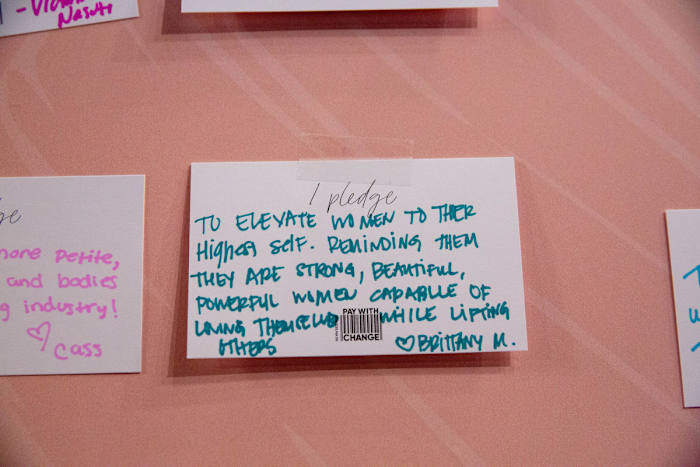 Nasuti
I pledge
TO ELEVATE WOMEN TO THER
HigHest Self. REMINDING THEM
THEY ARE STRONG, BEAUTIFUL,
POWERFUL WOMEN CAPABLE OF
LOVING THEMSELVES WHILE LIFTING
OTHERS
PAY WITH
CHANGE
♡ BRITTANY M.
more Petite,
and bodies
industry!
♡
Cass